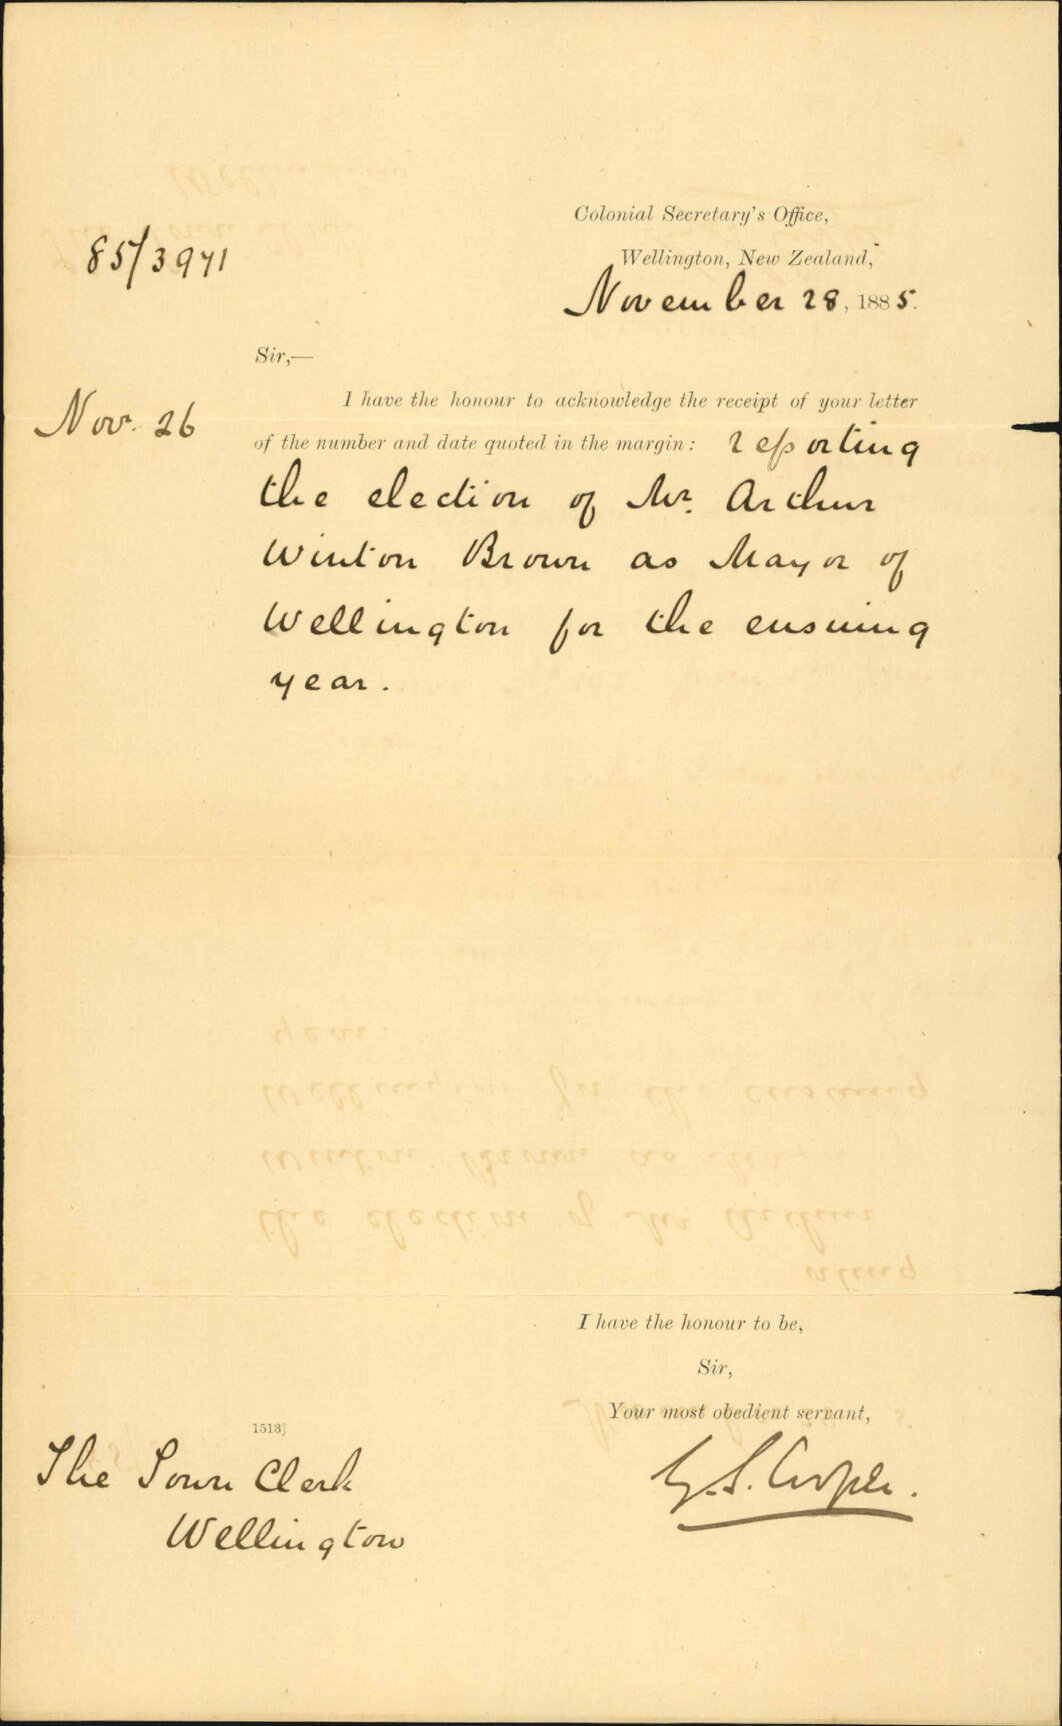 Colonial Secretary's Office,
85/3971
Wellington, New Zealand,
November 28, 1885.
Sir,—
I have the honour to acknowledge the receipt of your letter
Nov. 26
of the number and date quoted in the margin: reporting
the election of Mr. Arthur
Winton Brown as Mayor of
Wellington for the ensuing
year.
I have the honour to be,
Sir,
Your most obedient servant,
1513]
The Town Clerk
G. S. Cooper.
Wellington